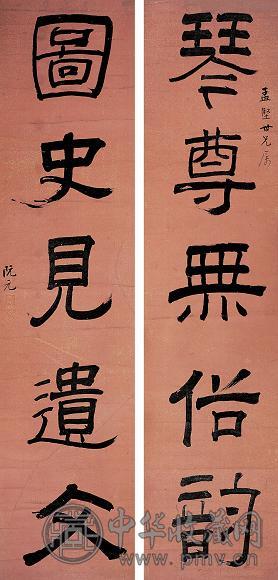 孟堅世兄属
琴尊無俗韵
圖史見遺文
阮元
中华收藏网
www.pmv.cn